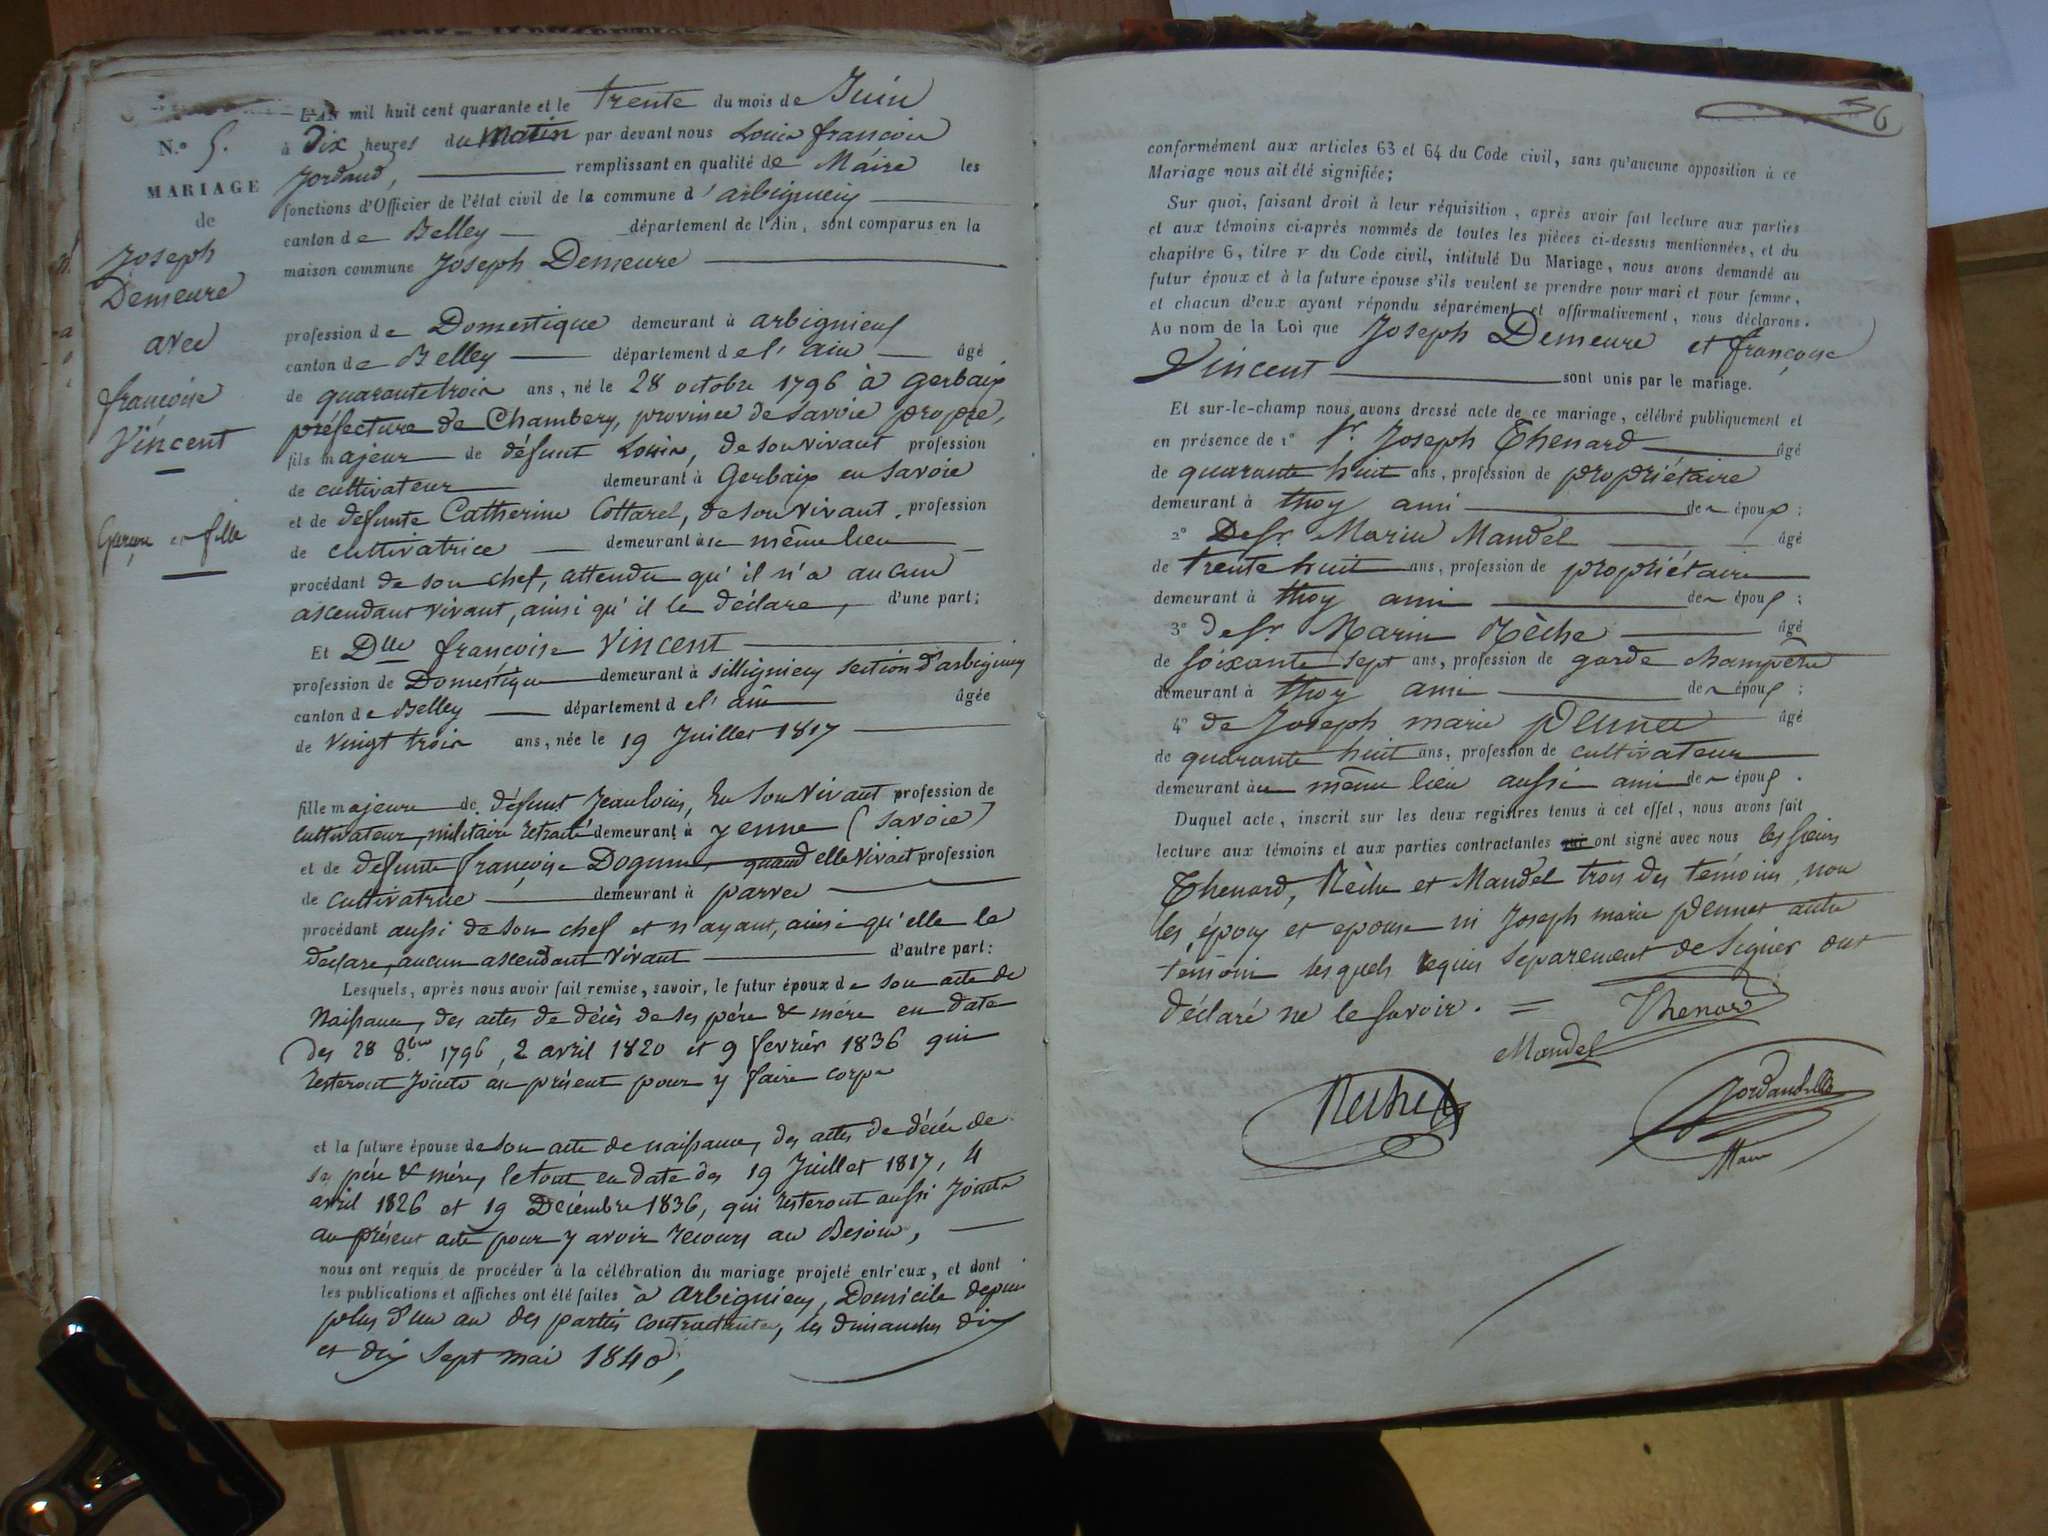 L'AN mil huit cent quarante et le trente du mois de Juin
N.° 5.
à Dix heures du Matin par devant nous Louis françois
Jordand, remplissant en qualité de Maire les
MARIAGE
fonctions d'Officier de l'état civil de la commune d'arbignieu
de
canton de Belley département de l'Ain, sont comparus en la
maison commune Joseph Demeure
Joseph
Demeure
avec
françoise
Vincent
Garçon et fille
profession de Domestique demeurant à arbignieu
canton de Belley département de l'ain âgé
de quarante trois ans, né le 28 octobre 1796 à Gerbaix
préfecture de Chambery, province de Savoie propre,
fils majeur de défunt Louis, de son vivant profession
de cultivateur demeurant à Gerbaix en Savoie
et de défunte Catherine Cottarel, de son vivant profession
de cultivatrice demeurant au même lieu
procédant de son chef, attendu qu'il n'a aucun
ascendant vivant, ainsi qu'il le déclare, d'une part;
Et Dlle françoise Vincent
profession de Domestique demeurant à sillignieu section d'arbignieu
canton de Belley département de l'ain âgée
de vingt trois ans, née le 19 Juillet 1817
fille majeure de défunt Jean louis, en son vivant profession de
cultivateur, militaire retraité demeurant à yenne (Savoie)
et de défunte françoise quand elle vivait profession
de cultivatrice demeurant à parves
procédant aussi de son chef et n'ayant, ainsi qu'elle le
déclare, aucun ascendant vivant d'autre part:
Lesquels, après nous avoir fait remise, savoir, le futur époux de son acte de
Naissance, des actes de décès de ses père & mère en date
des 28 8bre 1796, 2 avril 1820 et 9 février 1836 qui
resteront joints au présent pour y faire corps
et la future épouse de son acte de naissance, des actes de décès de
ses père & mère, le tout en date des 19 Juillet 1817, 4
avril 1826 et 19 Décembre 1836, qui resteront aussi Joints
au présent acte pour y avoir recours au Besoin,
nous ont requis de procéder à la célébration du mariage projeté entr'eux, et dont
les publications et affiches ont été faites à arbignieu, Domicile depuis
plus d'un an des parties contractantes, les dimanches dix
et dix sept mai 1840,
6
conformément aux articles 63 et 64 du Code civil, sans qu'aucune opposition à ce
Mariage nous ait été signifiée;
Sur quoi, faisant droit à leur réquisition, après avoir fait lecture aux parties
et aux témoins ci-après nommés de toutes les pièces ci-dessus mentionnées, et du
chapitre 6, titre v du Code civil, intitulé Du Mariage, nous avons demandé au
futur époux et à la future épouse s'ils veulent se prendre pour mari et pour femme,
et chacun d'eux ayant répondu séparément et affirmativement, nous déclarons.
Au nom de la Loi que Joseph Demeure et françoise
Vincent sont unis par le mariage.
Et sur-le-champ nous avons dressé acte de ce mariage, célébré publiquement et
en présence de 1° Sr Joseph Thenard âgé
de quarante huit ans, profession de propriétaire
demeurant à thoy ami des époux;
2° De Sr Marin Mandel âgé
de trente huit ans, profession de propriétaire
demeurant à thoy ami des époux;
3° de Sr Marin Rèche âgé
de soixante sept ans, profession de garde champêtre
demeurant à thoy ami des époux;
4° de Joseph marie âgé
de quarante huit ans, profession de cultivateur
demeurant au même lieu aussi ami des époux.
Duquel acte, inscrit sur les deux registres tenus à cet effet, nous avons fait
lecture aux témoins et aux parties contractantes qui ont signé avec nous les sieurs
Thenard, Rèche et Mandel trois des témoins, non
les époux et epouse ni Joseph marie autre
témoin lesquels requis separement de signer ont
déclaré ne le savoir. = Thenard
Mandel
Reche
Maire